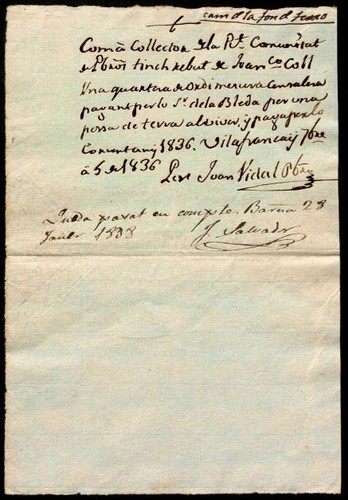 camí de la font de ferro
Com á Collector de la Rt. Comunitat
de Pbres tinch rebut de Juan Coll
Una quartera de Ordi mesura Censalera
pagant per lo Sr. de la Bleda por una
pessa de terra al Viver, y paga per lo
Corrent any 1836. Vilafranca y 7bre
á 5 de 1836
Pere Juan Vidal Pbre
Queda pasat en compte. Barna 28
Janer 1838
J. Salvador